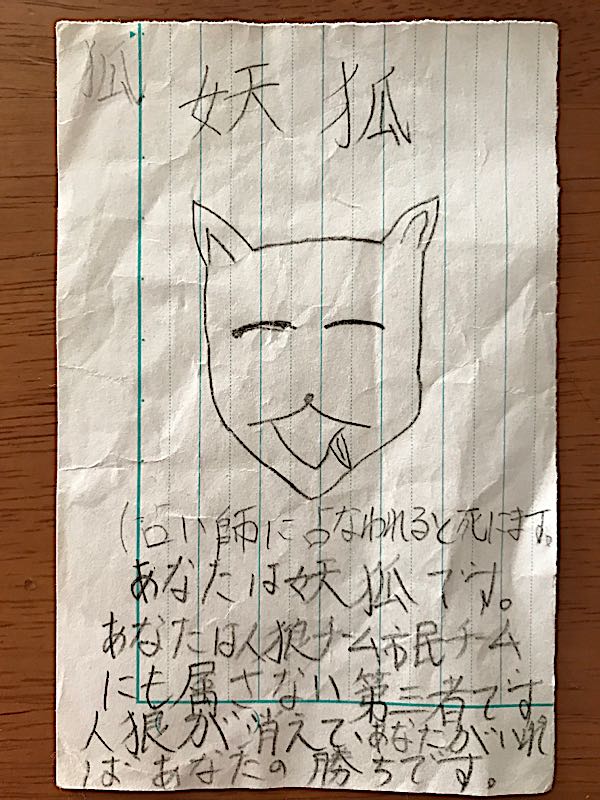 狐
妖狐
(占い師に占なわれると死にます。
あなたは妖狐です。
あなたは人狼チーム市民チーム
にも属さない第三者です
人狼が消えて、あなたがいれ
ばあなたの勝ちです。